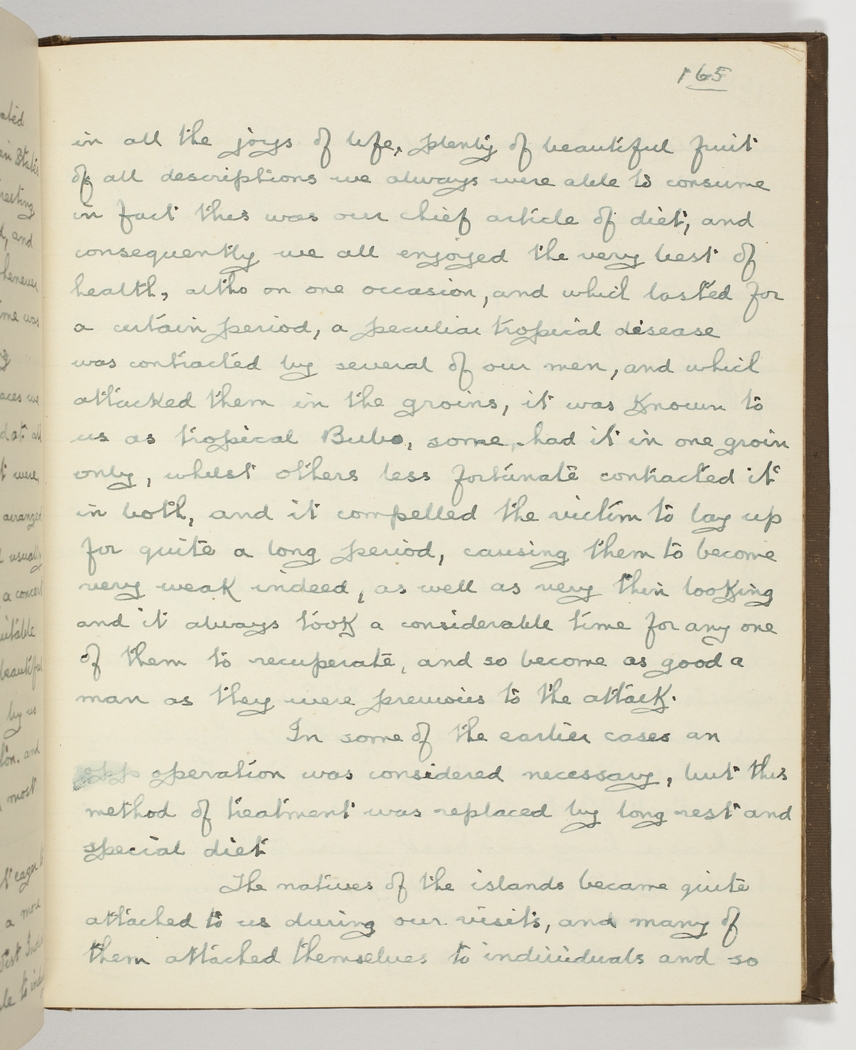 165
in all the joys of life, plenty of beautiful fruit
of all descriptions we always were able to consume
in fact this was our chief article of diet, and
consequently we all enjoyed the very best of
health, altho on one occasion, and which lasted for
a certain period, a peculiar tropical disease
was contracted by several of our men, and which
attacked them in the groins, it was known to
us as tropical Bubo, some, had it in one groin
only, whilst others less fortunate contracted it
in both, and it compelled the victim to lay up
for quite a long period, causing them to become
very weak indeed, as well as very thin looking
and it always took a considerable time for any one
of them to recuperate, and so become as good a
man as they were previous to the attack.
In some of the earlier cases an
operation was considered necessary, but this
method of treatment was replaced by long rest and
special diet
The natives of the islands became quite
attached to us during our visits, and many of
them attached themselves to individuals and so